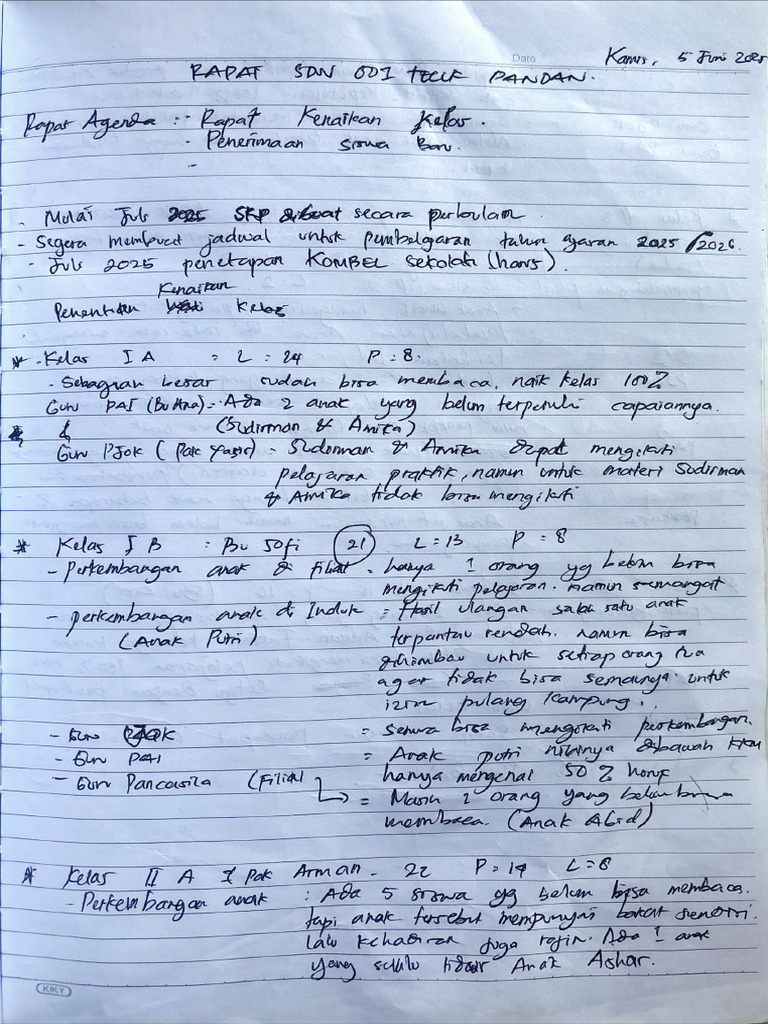 Date
Kamis, 5 Juni 2025
RAPAT SDN 001 TELUK PANDAN.
Rapat Agenda : - Rapat Kenaikan Kelas.
- Penerimaan siswa Baru.
-
- Mulai Juli 2025 SKP dibuat secara perbulan.
- Segera membuat jadwal untuk pembelajaran tahun ajaran 2025/2026.
- Juli 2025 penetapan KOMBEL sekolah (harus).
Kenaikan
Penentuan Kelas
* - Kelas I A = L : 24 P : 8.
- Sebagian besar sudah bisa membaca, naik kelas 100%
Guru PAI (Bu Ana) = Ada 2 anak yang belum terpenuhi capaiannya.
& (Sudirman & Annika)
Guru PJOK (Pak Yasir) = Sudirman & Annika dapat mengikuti
pelajaran praktik, namun untuk materi Sudirman
& Annika tidak bisa mengikuti
* Kelas I B : Bu Sofi 21 L = 13 P = 8
- Perkembangan anak di Filial = hanya 1 orang yg belum bisa
mengikuti pelajaran. Namun semangat
- perkembangan anak di Induk = Hasil ulangan salah satu anak
(Anak Putri) terpantau rendah. namun bisa
dihimbau untuk setiap orang tua
agar tidak bisa semaunya untuk
izin pulang kampung..
- Guru PJOK = semua bisa mengikuti perkembangan.
- Guru PAI = Anak putri nilainya dibawah KKM
hanya mengenal 50% huruf
- Guru Pancasila (Filial = Masih 2 orang yang belum bisa
membaca. (Anak Abid)
* Kelas II A Pak Arman. 22 P = 14 L = 8
- Perkembangan anak : Ada 5 siswa yg belum bisa membaca.
tapi anak tersebut mempunyai bakat sendiri.
lalu kehadiran juga rajin. Ada 1 anak
yang selalu tidur Anak Ashar.
KIKY